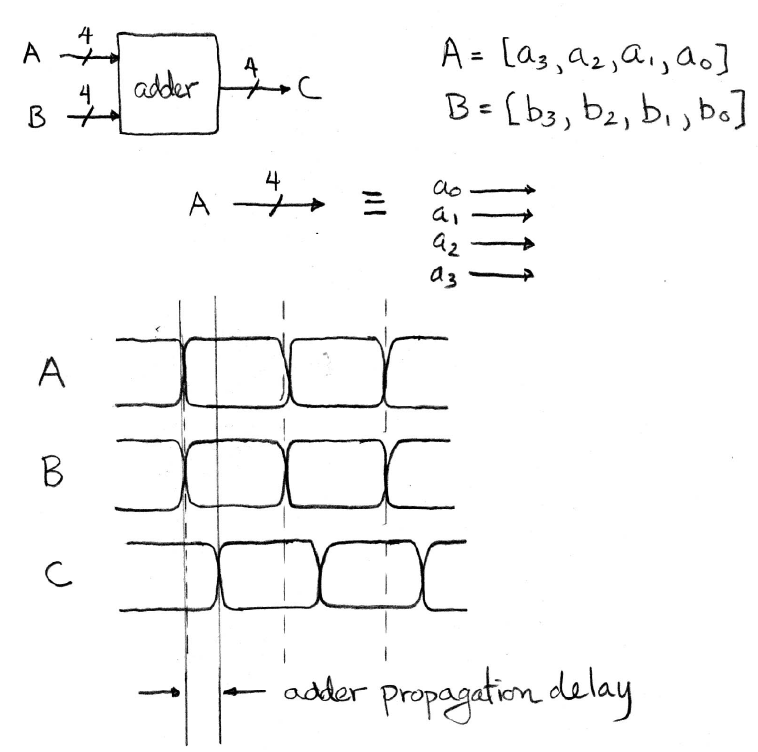 A 4
B 4
adder
4 C
A = [a3, a2, a1, a0]
B = [b3, b2, b1, b0]
A 4 ≡
a0
a1
a2
a3
A
B
C
adder propagation delay